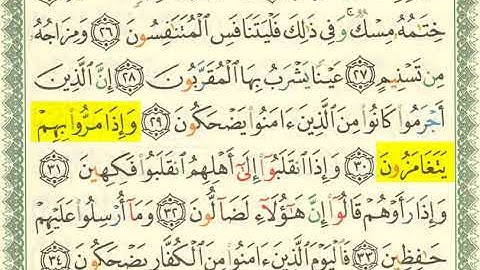 خِتَٰمُهُۥ مِسْكٌ ۚ وَفِى ذَٰلِكَ فَلْيَتَنَافَسِ ٱلْمُتَنَٰفِسُونَ ٢٦ وَمِزَاجُهُۥ
مِن تَسْنِيمٍ ٢٧ عَيْنًا يَشْرَبُ بِهَا ٱلْمُقَرَّبُونَ ٢٨ إِنَّ ٱلَّذِينَ
أَجْرَمُوا۟ كَانُوا۟ مِنَ ٱلَّذِينَ ءَامَنُوا۟ يَضْحَكُونَ ٢٩ وَإِذَا مَرُّوا۟ بِهِمْ
يَتَغَامَزُونَ ٣٠ وَإِذَا ٱنقَلَبُوٓا۟ إِلَىٰٓ أَهْلِهِمُ ٱنقَلَبُوا۟ فَكِهِينَ ٣١
وَإِذَا رَأَوْهُمْ قَالُوٓا۟ إِنَّ هَٰٓؤُلَآءِ لَضَآلُّونَ ٣٢ وَمَآ أُرْسِلُوا۟ عَلَيْهِمْ
حَٰفِظِينَ ٣٣ فَٱلْيَوْمَ ٱلَّذِينَ ءَامَنُوا۟ مِنَ ٱلْكُفَّارِ يَضْحَكُونَ ٣٤